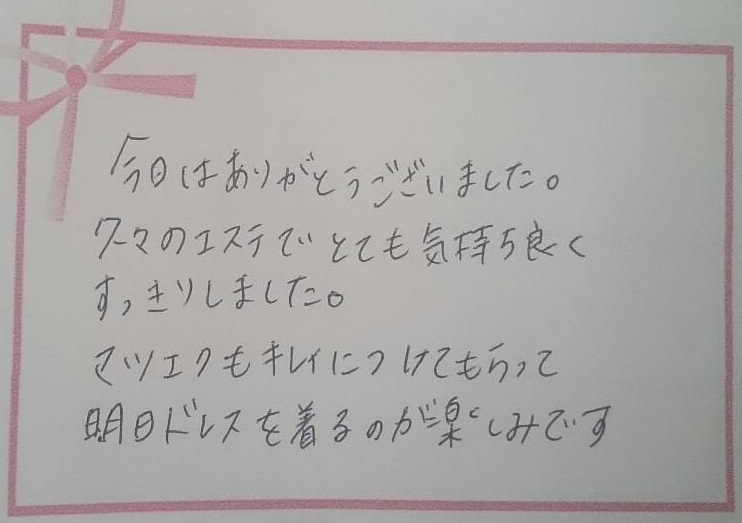 今日はありがとうございました。
久々のエステでとても気持ち良く
すっきりしました。
マツエクもキレイにつけてもらって
明日ドレスを着るのが楽しみです